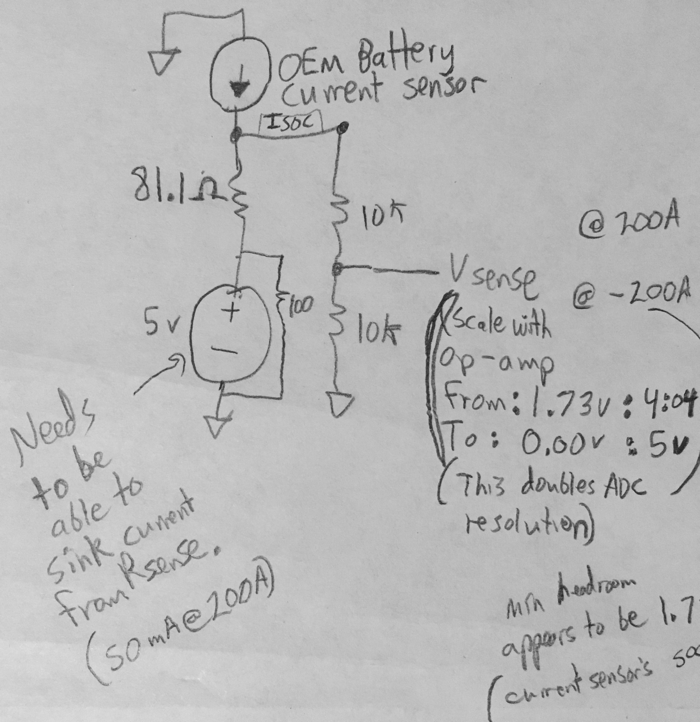 OEM Battery
Current sensor
ISOC
81.1Ω
10k
@ 200A
Vsense
@ -200A
5v
+
-
100
10k
(Scale with
Op-amp
From: 1.73v : 4:04
To: 0.00v : 5v
(This doubles ADC
resolution)
Needs
to be
able to
sink current
from Rsense.
(50mA@200A)
Min headroom
appears to be 1.7
(current sensor's